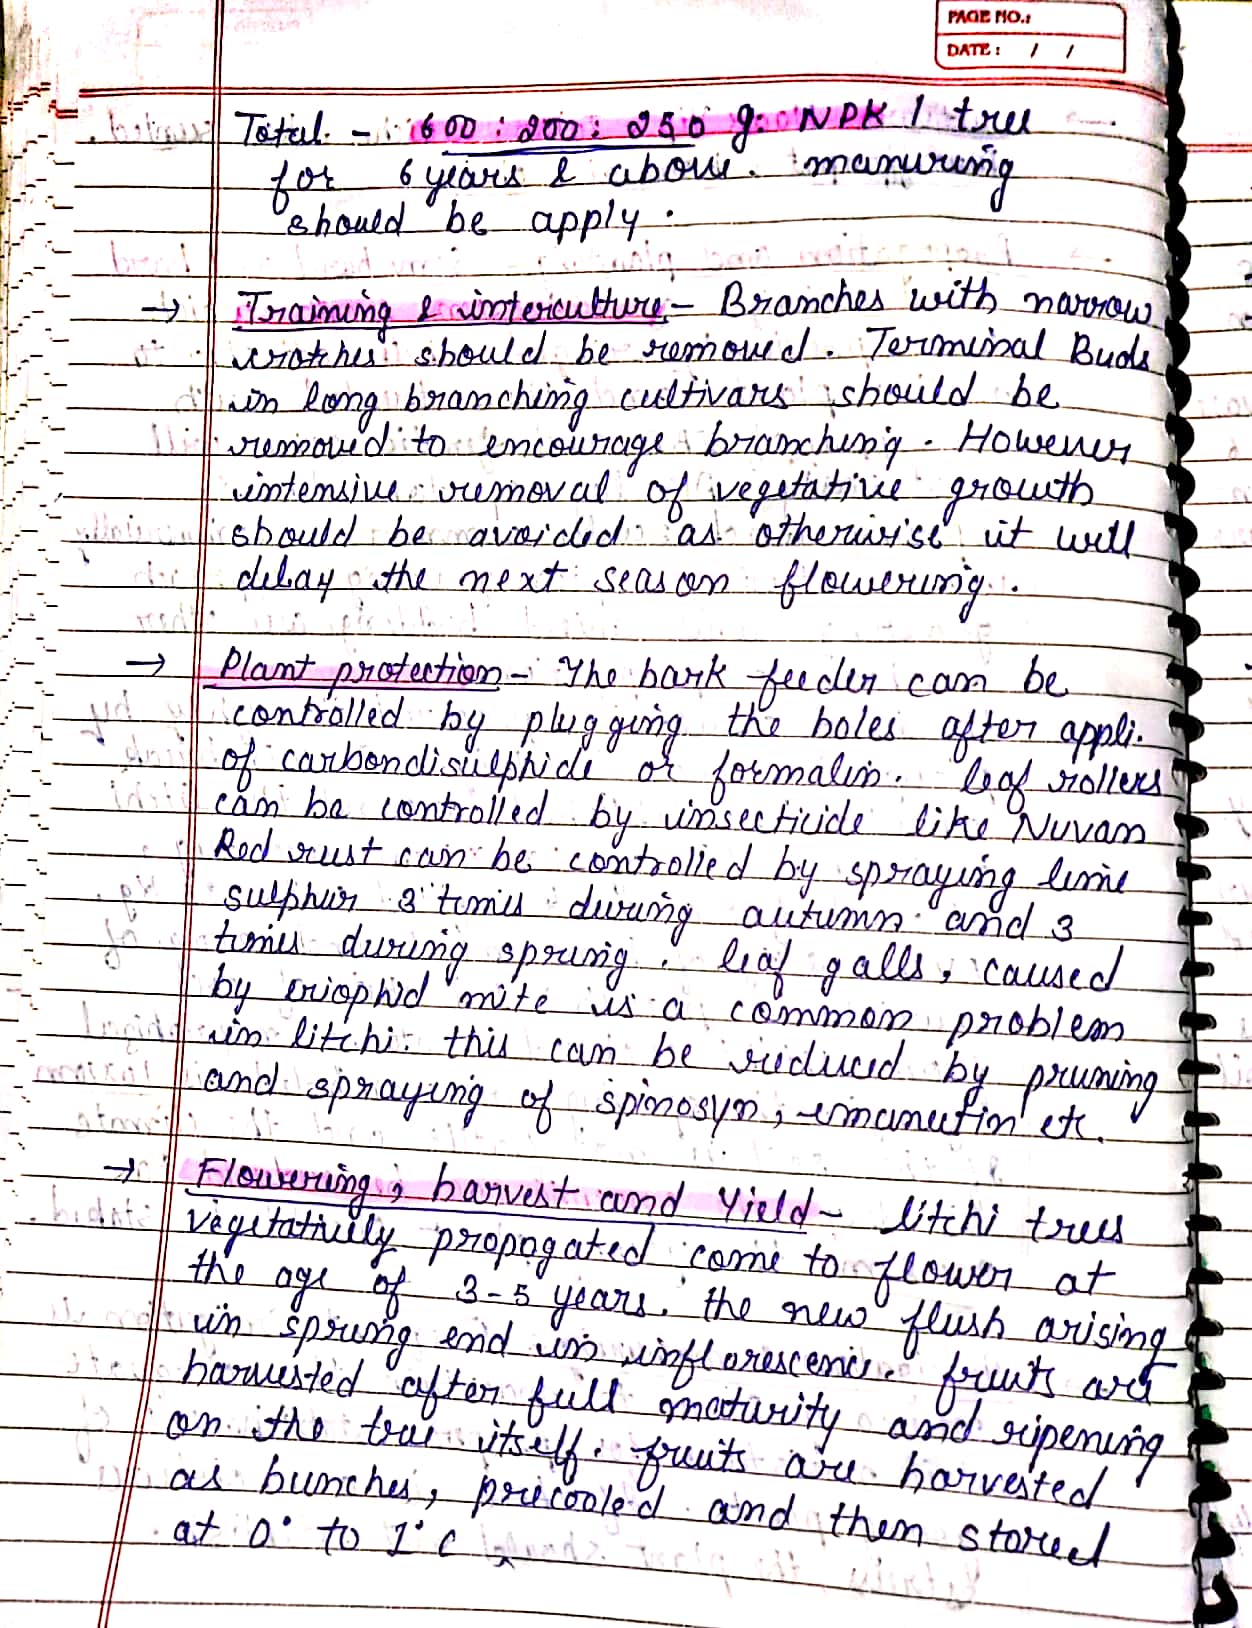 PAGE NO.:
DATE: / /
Total - 600 : 200 : 250 g. NPK / tree
for 6 years & above. manuring
should be apply.
→ Training & interculture - Branches with narrow
crotches should be removed. Terminal Buds
in long branching cultivars should be
removed to encourage branching. However
intensive removal of vegetative growth
should be avoided as otherwise it will
delay the next season flowering.
→ Plant protection - The bark feeder can be
controlled by plugging the holes after appli.
of carbondisulphide or formalin. leaf rollers
can be controlled by insecticide like Nuvan
Red rust can be controlled by spraying lime
sulphur 3 times during autumn and 3
times during spring. leaf galls, caused
by eriophid mite is a common problem
in litchi. this can be reduced by pruning
and spraying of spinosyn, emamectin etc.
→ Flowering, harvest and Yield - litchi trees
vegetatively propogated come to flower at
the age of 3-5 years. the new flush arising
in spring end in inflorescence. fruits are
harvested after full maturity and ripening
on the tree itself. fruits are harvested
as bunches, precooled and then stored
at 0° to 1°c